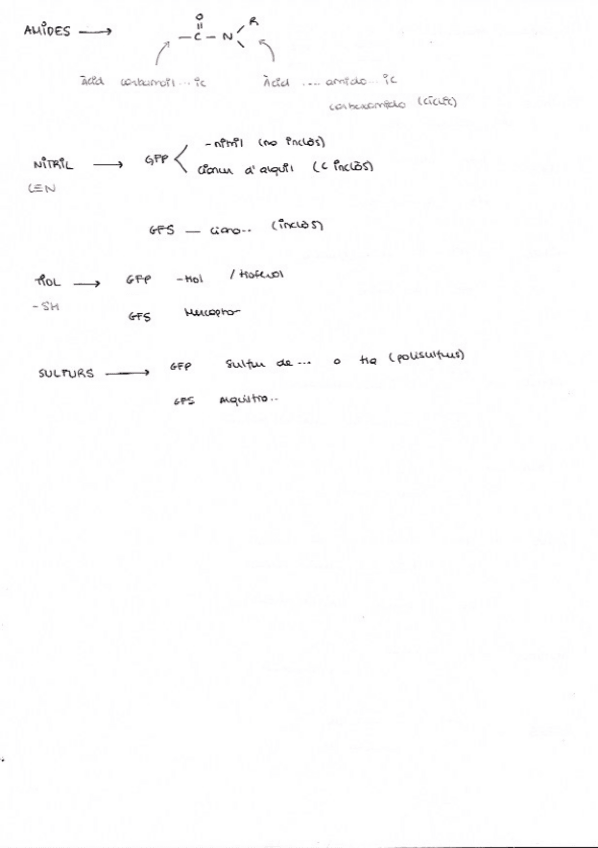 AMIDES → O
— C — N R
Àcid carbamoil...ic Àcid ....amido...ic
carboxamido (cíclic)
NITRIL → GFP -nitril (no inclòs)
C≡N cianur d'alquil (C inclòs)
GFS — ciano.. (inclòs)
TIOL → GFP -tiol / tiofenol
-SH GFS Mercapto-
SULFURS → GFP Sulfur de... o tia (polisulfurs)
GFS Alquiltio..